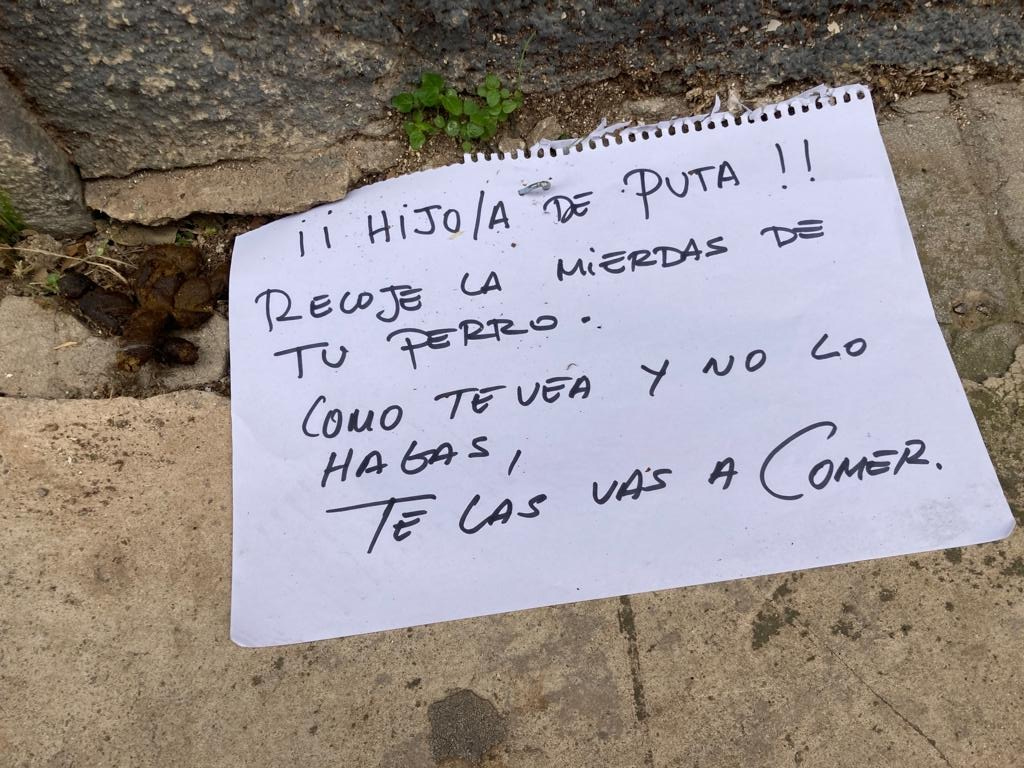 ¡¡ HIJO/A DE PUTA !!
RECOJE LA MIERDAS DE
TU PERRO.
COMO TE VEA Y NO LO
HAGAS,
TE LAS VAS A COMER.